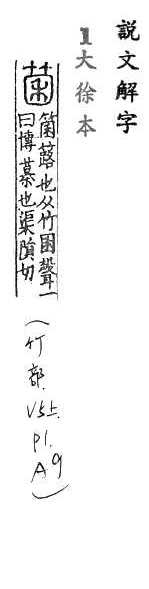 說文解字
1大徐本
箘 箘簬也从竹囷聲一
曰博棊也渠隕切
(竹部. V5上. P1. A9)